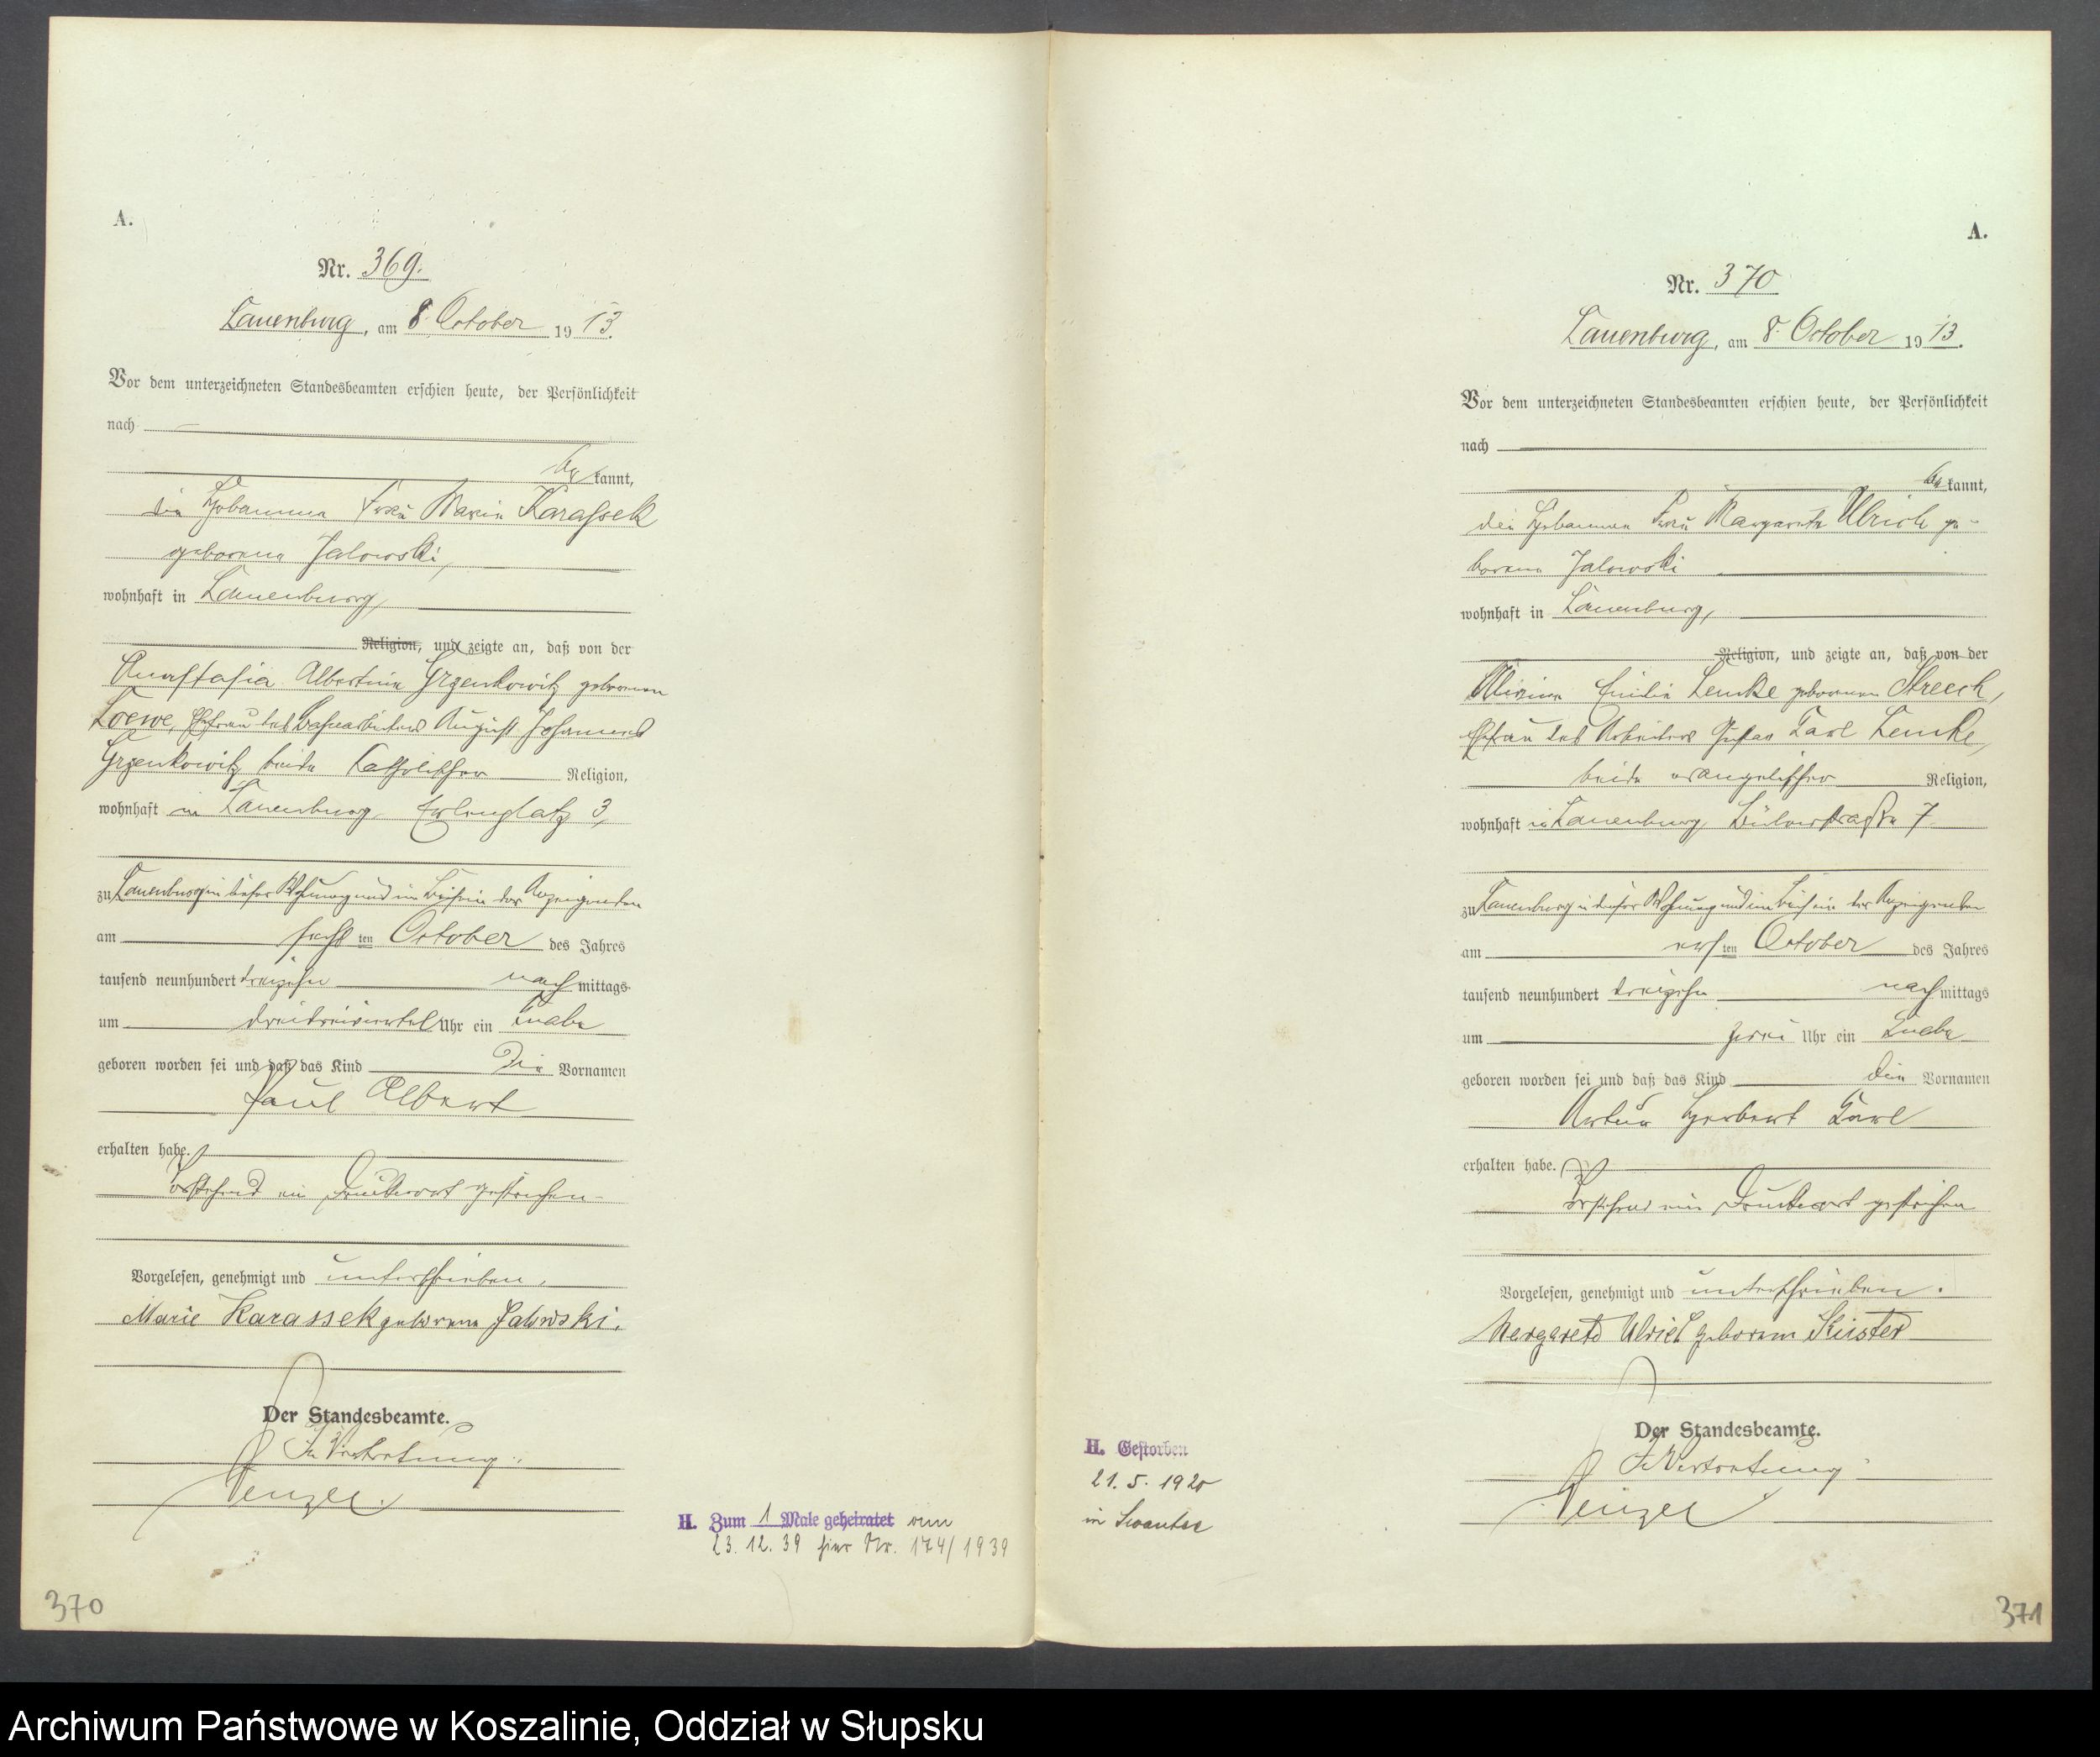 A.
Nr. 369.
Lauenburg, am 8. October 1913.
Vor dem unterzeichneten Standesbeamten erschien heute, der Persönlichkeit
nach
be kannt,
die Hebamme Frau Marie Karassek
geborene Jalowski,
wohnhaft in Lauenburg,
Religion, und zeigte an, daß von der
Anastasia Albertine Grzenkowitz geborenen
Loewe, Ehefrau des Bahnarbeiters August Johannes
Grzenkowitz, beide katholischer Religion,
wohnhaft in Lauenburg, Erlenplatz 3,
zu Lauenburg in dieser Wohnung und im Beisein der Anzeigenden
am sechsten October des Jahres
tausend neunhundert dreizehn nachmittags
um dreidreiviertel Uhr ein Knabe
geboren worden sei und daß das Kind die Vornamen
Paul Albert
erhalten habe.
Vorstehend ein Druckwort gestrichen.
Vorgelesen, genehmigt und unterschrieben.
Marie Karassek geborene Jalowski.
Der Standesbeamte.
In Vertretung.
Wenzel.
H. Zum 1 Male geheiratet am
23. 12. 39 hier Nr. 174/1939
370
A.
Nr. 370
Lauenburg, am 8. October 1913.
Vor dem unterzeichneten Standesbeamten erschien heute, der Persönlichkeit
nach
be kannt,
die Hebamme Frau Margarete Ulrich ge-
borene Jalowski
wohnhaft in Lauenburg,
Religion, und zeigte an, daß von der
Emilie Lemke geborenen Streech,
Ehefrau des Arbeiters Gustav Carl Lemke,
beide evangelischer Religion,
wohnhaft in Lauenburg, Bülowstraße 7
zu Lauenburg in dieser Wohnung und im Beisein der Anzeigenden
am ersten October des Jahres
tausend neunhundert dreizehn nachmittags
um zwei Uhr ein Knabe
geboren worden sei und daß das Kind die Vornamen
Artur Herbert Carl
erhalten habe.
Vorstehend ein Druckwort gestrichen
Vorgelesen, genehmigt und unterschrieben.
Margarete Ulrich geborene Küster
Der Standesbeamte.
In Vertretung
Wenzel
H. Gestorben
21. 5. 1920
in Swantee
371
Archiwum Państwowe w Koszalinie, Oddział w Słupsku